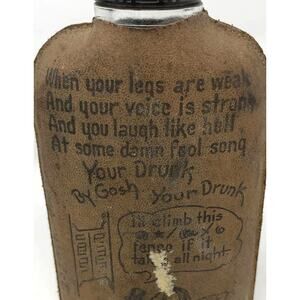 When your legs are weak
And your voice is strong
And you laugh like hell
At some damn fool song
Your Drunk
By Gosh Your Drunk
I'd climb this
fence if it
takes all night